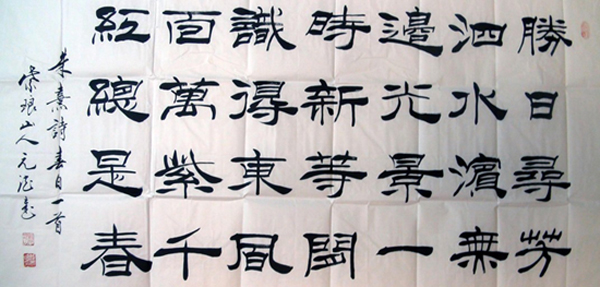 勝日尋芳
泗水濱無
邊光景一
時新等閒
識得東風
面萬紫千
紅總是春
朱熹詩春日一首
紫琅山人元書